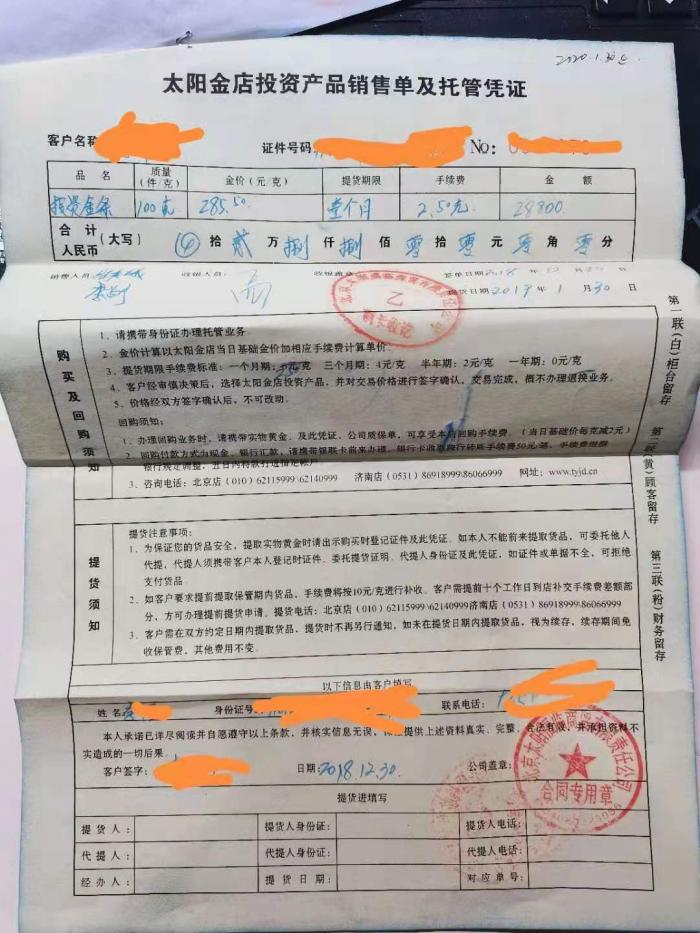 2020.1.30
太阳金店投资产品销售单及托管凭证
客户名称
证件号码
No:
品 名 质量(件/克) 金价(元/克) 提货期限 手续费 金 额
投资金条 100克 285.50 壹个月 2.50元 28800
合 计 人民币 (大写) 拾 贰 万 捌 仟 捌 佰 零 拾 零 元 零 角 零 分
销售人员: 收银人员: 收银盖章: 签单日期2018 年 12 30 日
提货日期2019 年 1 月 30 日
北京太阳 有限责任公司
乙
刷卡收讫
购买及回购须知
1、请携带身份证办理托管业务。
2、金价计算以太阳金店当日基础金价加相应手续费计算单价。
3、提货期限手续费标准:一个月期: 元/克 三个月期:4元/克 半年期:2元/克 一年期:0元/克
4、客户经审慎决策后,选择太阳金店投资产品,并对交易价格进行签字确认,交易完成,概不办理退换业务。
5、价格经双方签字确认后,不可改动。
回购须知:
1、办理回购业务时,请携带实物黄金、及此凭证、公司质保单,可享受本店回购手续费。(当日基础价每克减2元)
2、回购付款方式为现金、银行汇款,请携带银联卡前来办理,银行卡收取跨行转账手续费50元/笔,手续费根据
银行规定调整,五日内将款打进指定帐户
3、咨询电话:北京店(010)62115999\62140999 济南店(0531)86918999\86066999 网址:www.tyjd.cn
提货须知
提货注意事项:
1、为保证您的货品安全,提取实物黄金时请出示购买时登记证件及此凭证。如本人不能前来提取货品,可委托他人
代提,代提人须携带客户本人登记时证件、委托提货证明、代提人身份证及此凭证,如证件或单据不全,可拒绝
支付货品
2、如客户要求提前提取保管期内货品,手续费将按10元/克进行补收。客户需提前十个工作日到店补交手续费差额部
分,方可办理提前提货申请。提货电话:北京店(010)62115999\62140999济南店(0531)86918999\86066999
3、客户需在双方约定日期内提取货品,提货时不再另行通知,如未在提货日期内提取货品,视为续存,续存期间免
收保管费,其他费用不变。
以下信息由客户填写
姓名 身份证号 联系电话:
本人承诺已详尽阅读并自愿遵守以上条款,并核实信息无误,保证提供上述资料真实、完整、合法有效,并承担资料不
实造成的一切后果。
客户签字: 日期:2018.12.30. 公司盖章:
北京太阳 商贸有限责任公司
合同专用章
提货进填写
提 货 人: 提货人身份证: 提货人电话:
代 提 人: 代提人身份证: 代提人电话:
经 办 人: 提 货 日 期: 对 应 单 号:
第一联(白)柜台留存
第二联(黄)顾客留存
第三联(粉)财务留存